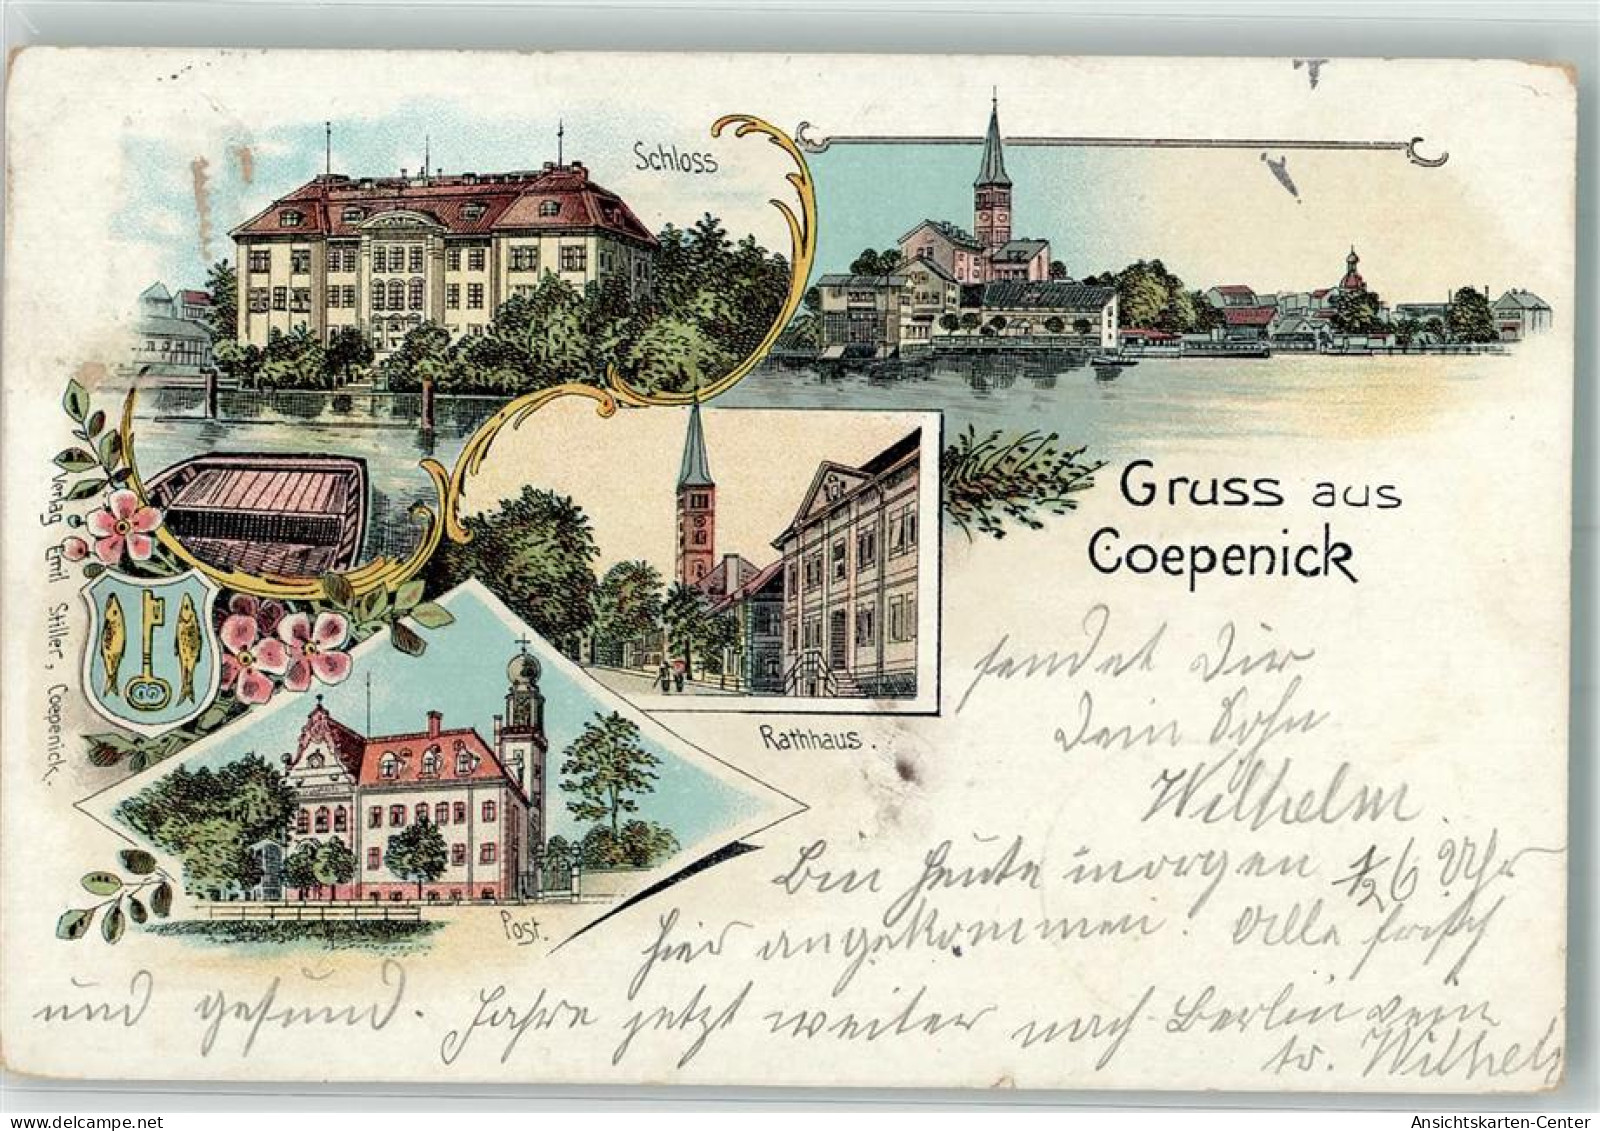 Schloss
Gruss aus
Coepenick
Rathhaus.
Post.
Verlag Emil Stiller, Coepenick.
sendet Dir
Dein Sohn
Wilhelm
Bin heute morgen 1/2 6 Uhr
hier angekommen. Alle frisch
und gesund. Fahre jetzt weiter nach Berlin
tr. Wilhelm
Ansichtskarten-Center